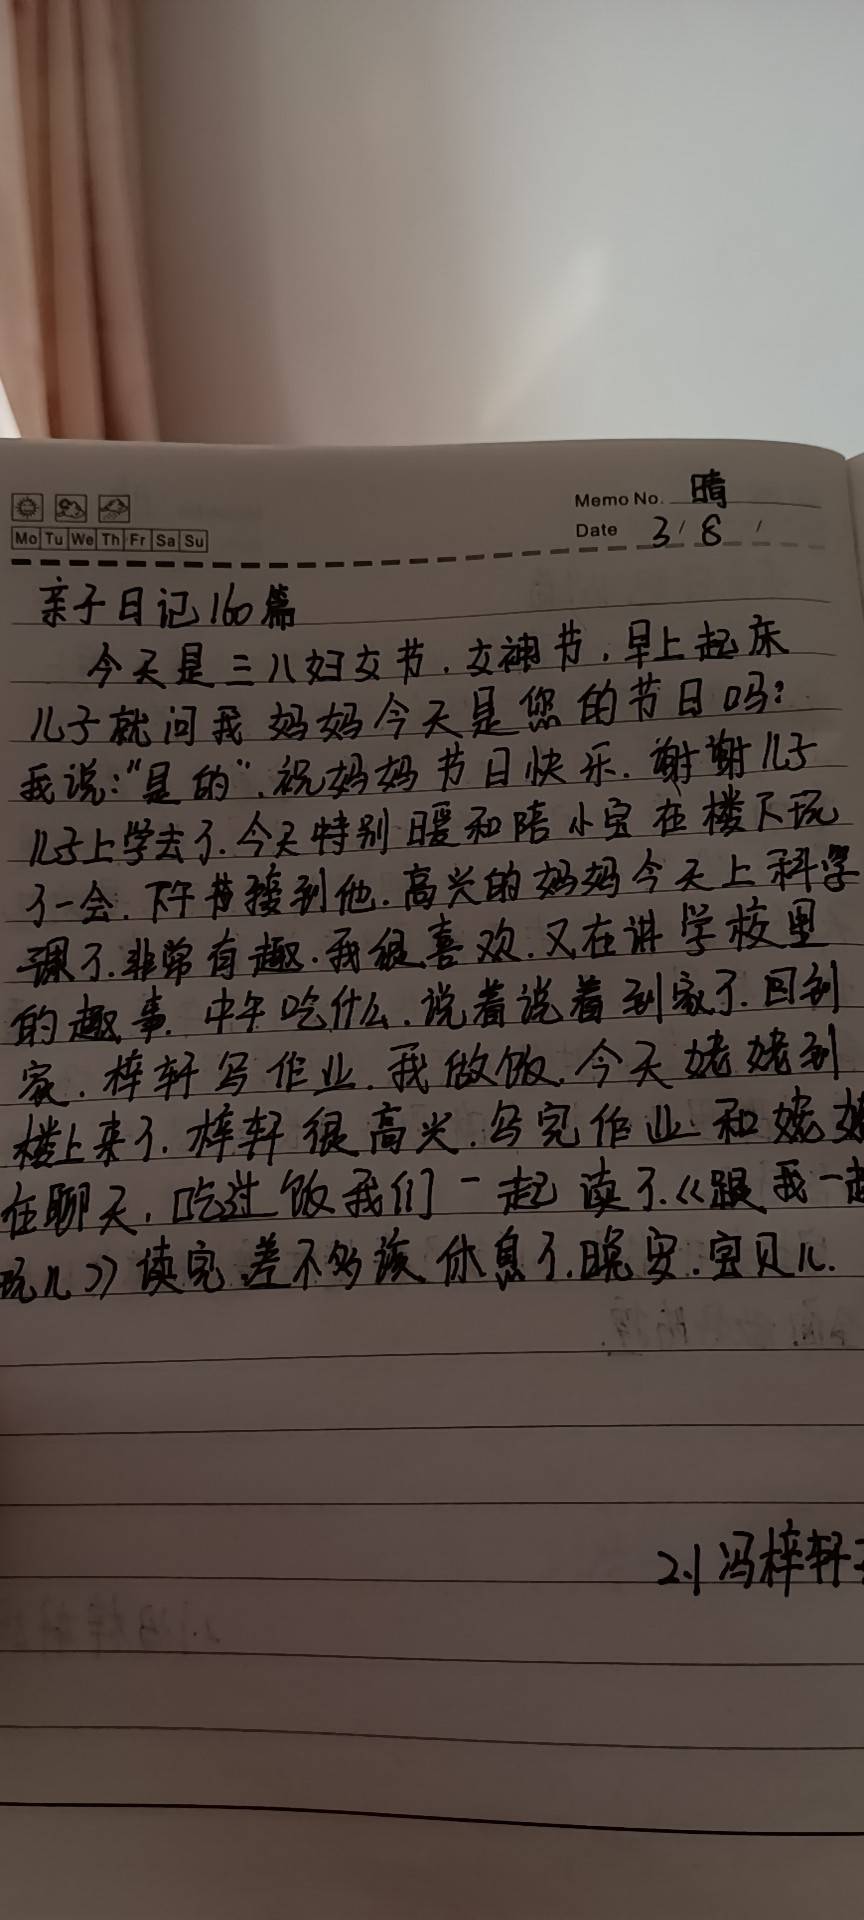 Memo No. 晴
Mo Tu We Th Fr Sa Su
Date 3 / 8 /
亲子日记160篇
今天是三八妇女节.女神节.早上起床
儿子就问我 妈妈今天是您的节日吗?
我说:"是的".祝妈妈节日快乐.谢谢儿子
儿子上学去了.今天特别暖和陪小宝在楼下玩
了一会.下午接到他.高兴的妈妈今天上科学
课了.非常有趣.我很喜欢.又在讲学校里
的趣事.中午吃什么.说着说着到家了.回到
家.梓轩写作业.我做饭.今天姥姥到
楼上来了.梓轩很高兴.写完作业和姥姥
在聊天,吃过饭我们一起读了.《跟我一起
玩儿》读完差不多该休息了.晚安.宝贝儿.
2.1 冯梓轩